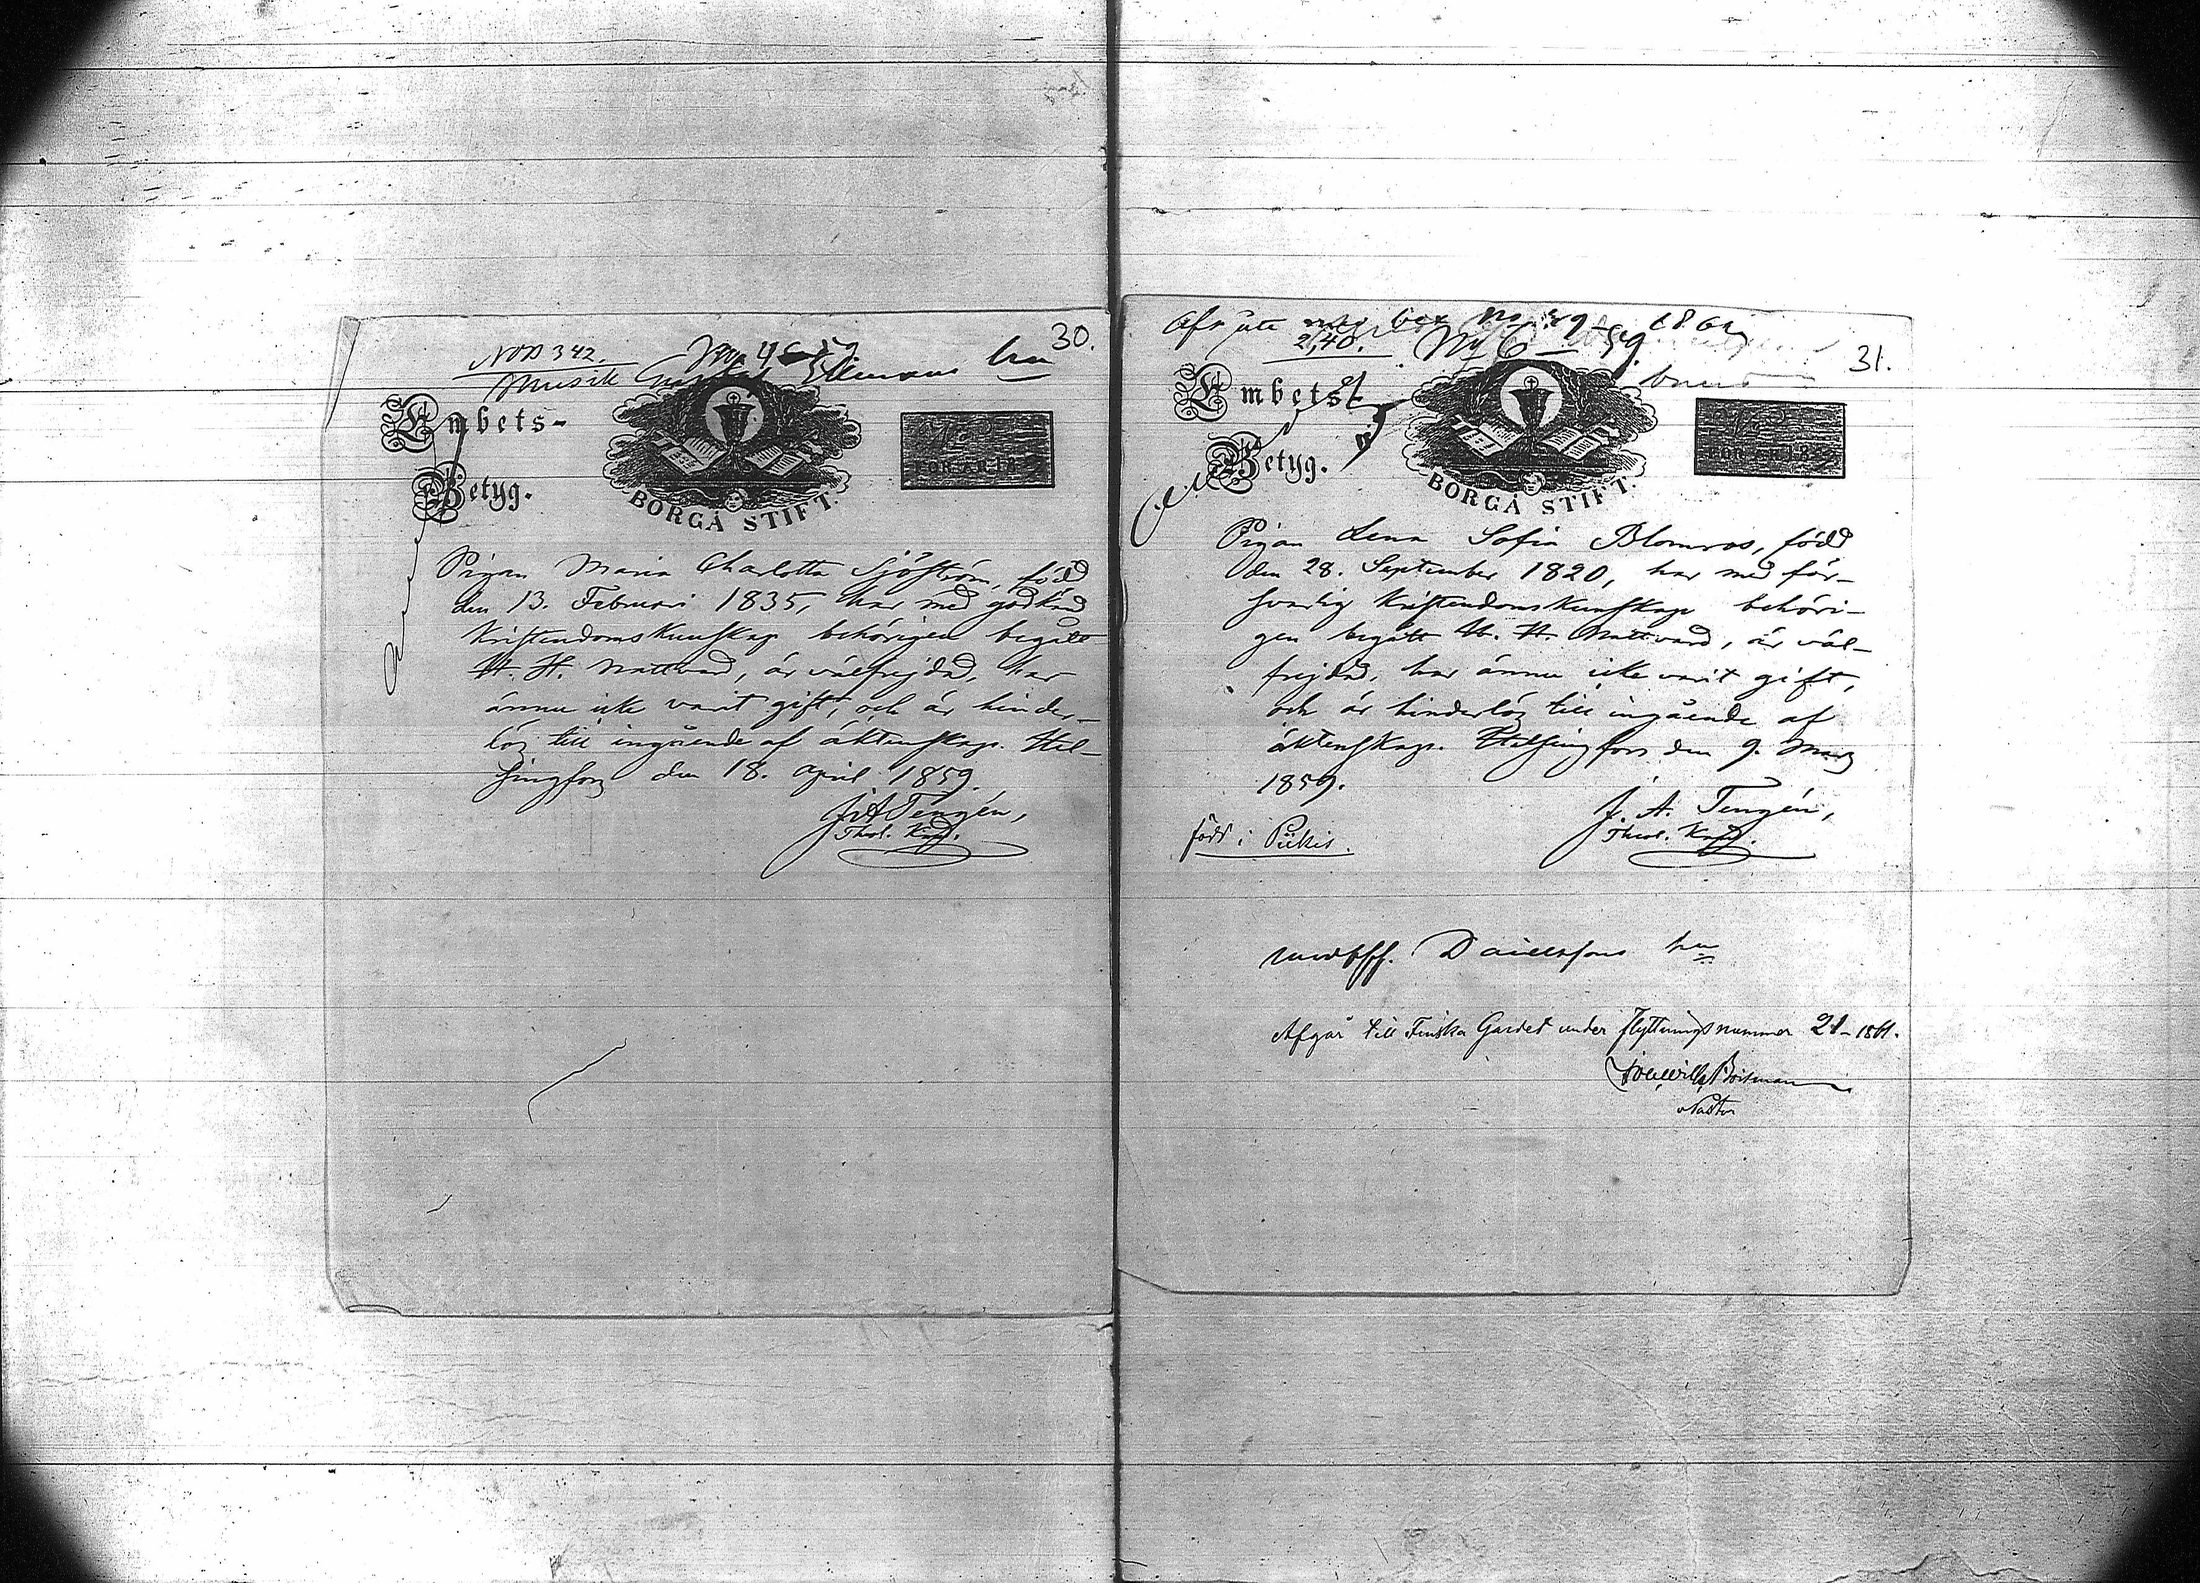 30.
NOD 342.
Musik
hu
Embets-
Betyg.
BORGÅ STIFT.
FÖR ÅR 18
Pigan Maria Charlotta Sjöström, född
den 13. Februari 1835, har med godkänd
Kristendomskunskap behörigen begått
H. H. Nattvard, är välfrejdad, har
ännu icke varit gift, och är hinder-
lös till ingående af äktenskap. Hel-
singfors den 18. April 1859.
J A Tengén,
Theol. Kand.
31.
2,40.
No 6 – 59
Embets-
Betyg.
BORGÅ STIFT.
FÖR ÅR 18
Pigan Lena Sofia Blomros, född
den 28. September 1820, har med för-
svarlig Kristendomskunskap behöri-
gen begått H. H. Nattvard, är väl-
frejdad, har ännu icke varit gift,
och är hinderlös till ingående af
äktenskap. Helsingfors den 9. Mars
1859.
J. A. Tengén,
Theol. Kand.
född i Piikis.
Danielsons hu
Afgår till Finska Gardet under flyttningsnummer 21–1861.
Pastor